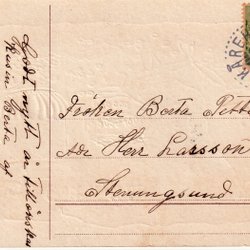 Godt nytt år tillönskas
Kusin Berta af
Fröken Berta
Adr Herr Larsson
Stenungsund
ÅRE